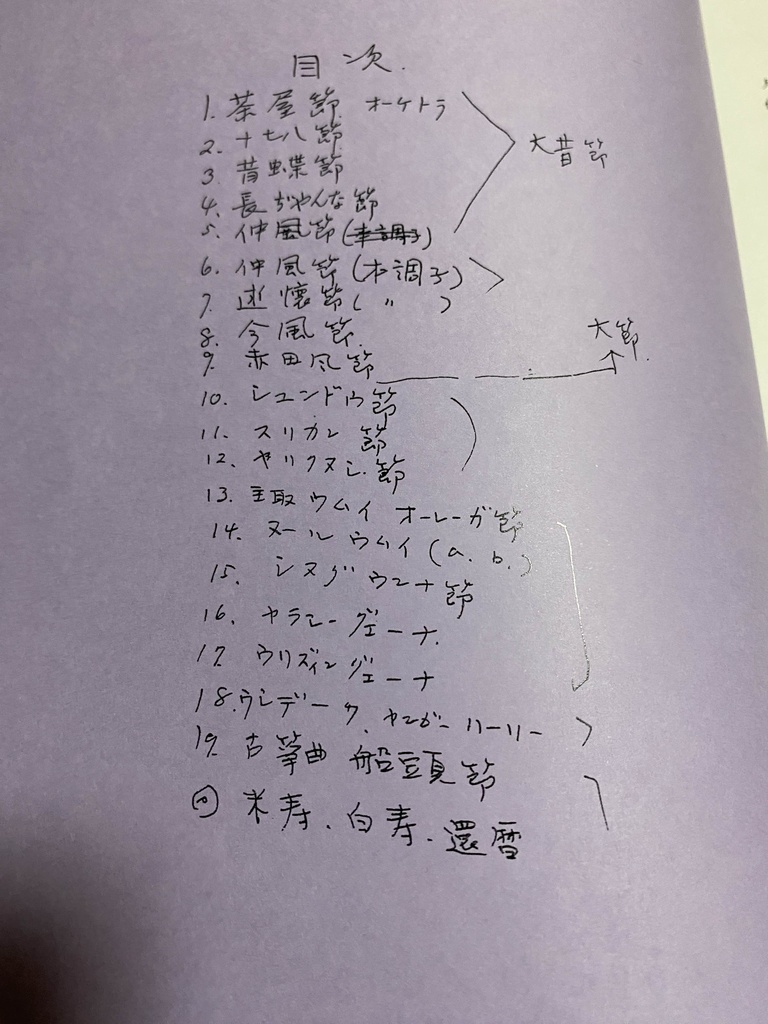 目次.
1. 茶屋節 オーケトラ
2. 十七八節
3 昔蝶節
大昔節
4. 長ぢゃんな節
5. 仲風節(本調子)
6. 仲風節(本調子)
7. 述懐節( 〃 )
8. 今風節.
9. 赤田風節
大節.
10. シュンドウ節
11. スリカン節
12. ヤリクヌシ節
13. 主取ウムイ オーレーガ節
14. ヌールウムイ(a. b.)
15. シヌグウエナ節
16. ヤラシーグェーナ.
17. ウリズィングェーナ
18. ウシデーク. ヤンガーリーリー
19. 古箏曲 船頭節
米寿. 白寿. 還暦